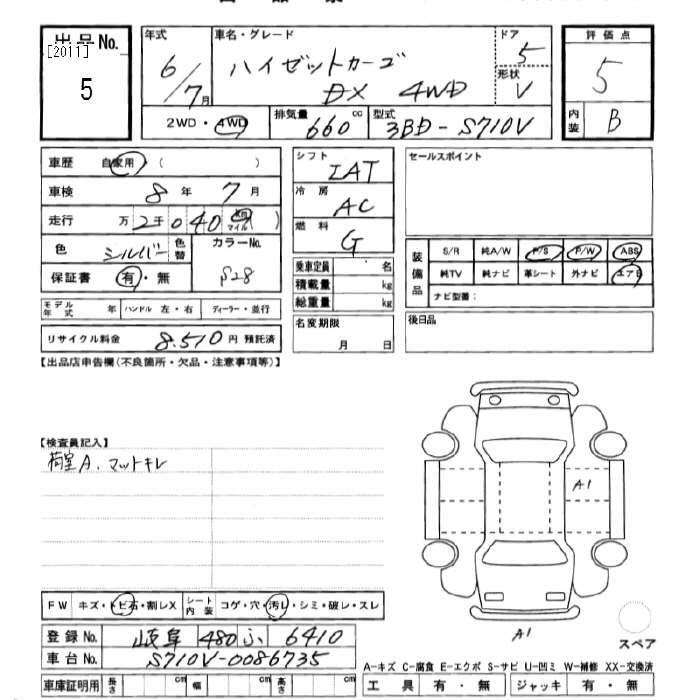 出品No.
[2011]
5
年式
6/7月
車名・グレード
ハイゼットカーゴ
DX 4WD
ドア
5
形状
V
評価点
5
内装
B
2WD・4WD
排気量
660 cc
型式
3BD-S710V
車歴 自家用 ( )
車検 8年 7月
走行 万 2千 0 4 0 マイル ( )
色 シルバー 色替
カラーNo.
S28
保証書 有・無
モデル年式 年 ハンドル 左・右 ディーラー・並行
リサイクル料金 8.510 円 預託済
シフト
IAT
冷房
AC
燃料
G
乗車定員 名
積載量 kg
総重量 kg
名変期限
月 日
セールスポイント
装備品
S/R 純A/W P/S P/W ABS
純TV 純ナビ 革シート 外ナビ エアB
ナビ型番:
後日品
【出品店申告欄(不良箇所・欠品・注意事項等)】
【検査員記入】
荷室A. マットキレ
A1
A1
FW キズ・トビ石・割レX
シート内装 コゲ・穴・汚レ・シミ・破レ・スレ
登録No. 岐阜 480 ふ 6410
車台No. S710V-0086735
車庫証明用 長さ cm 幅 cm 高さ cm
スペア
A-キズ C-腐食 E-エクボ S-サビ U-凹ミ W-補修 XX-交換済
工具 有・無 ジャッキ 有・無